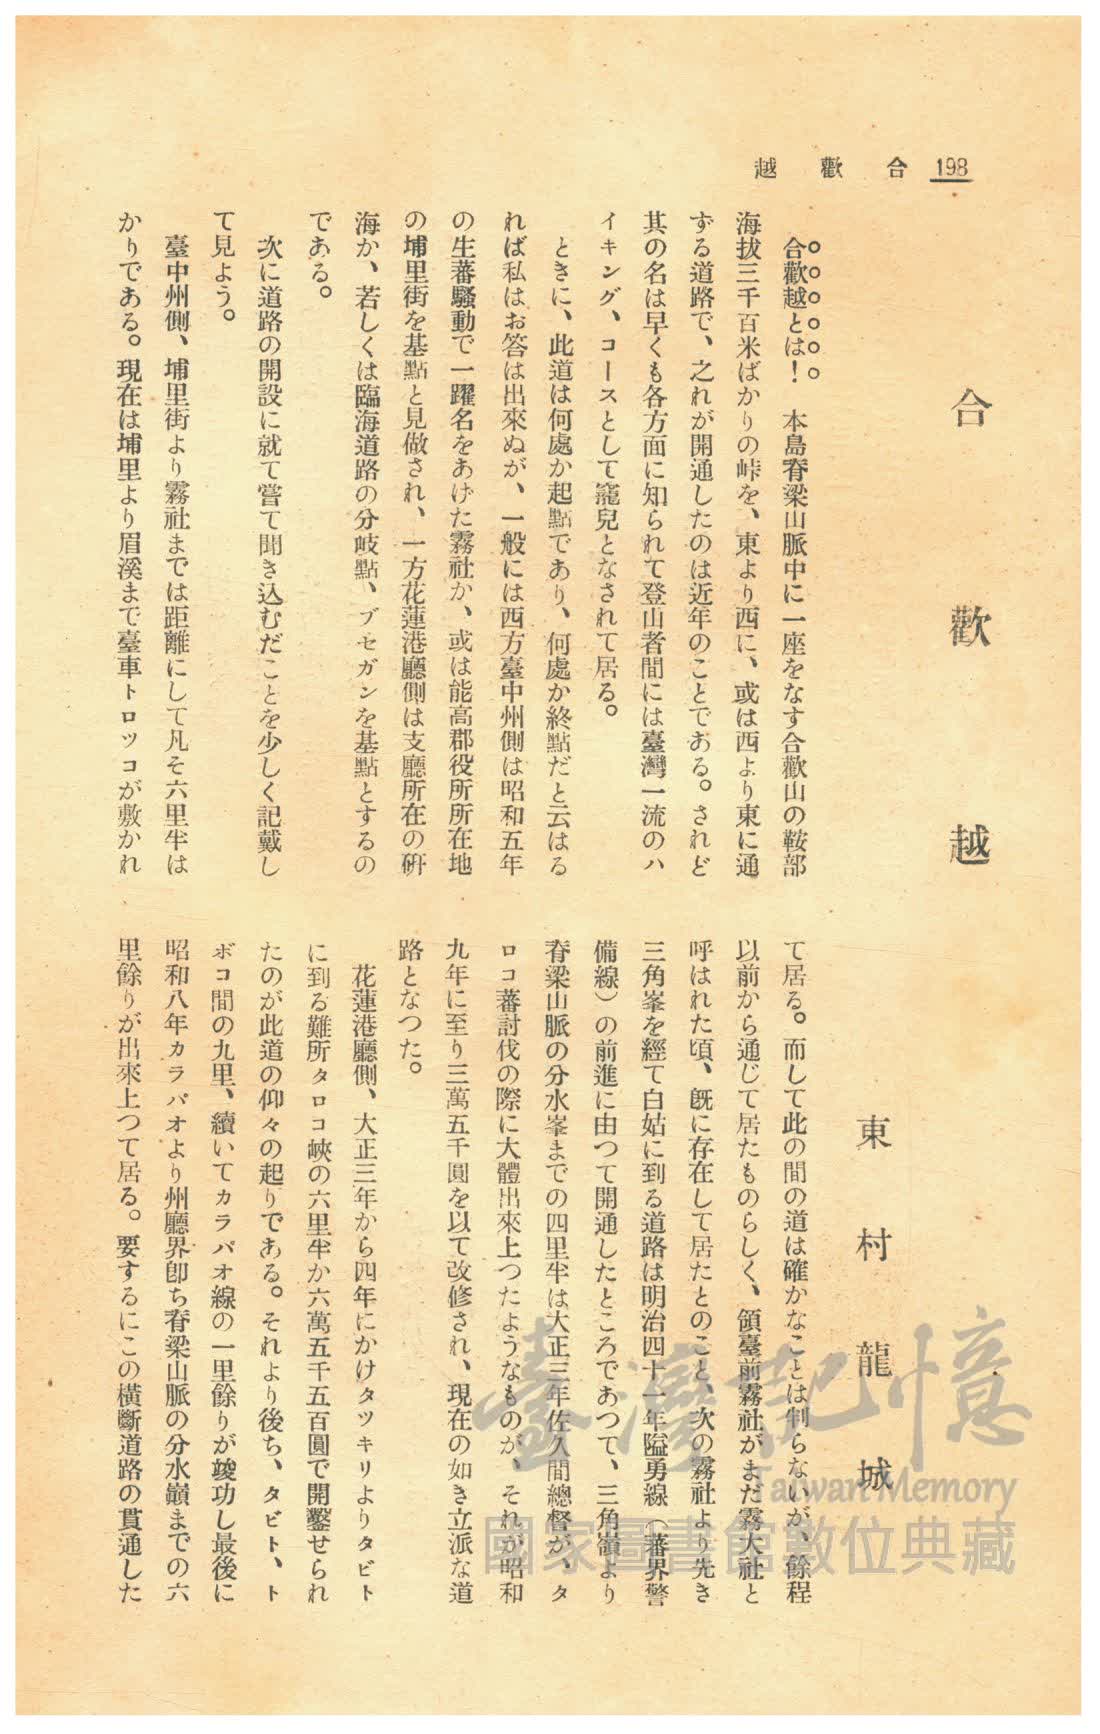 198 合歡越
合歡越
東村龍城
合歡越とは！　本島脊梁山脈中に一座をなす合歡山の鞍部
海拔三千百米ばかりの峠を、東より西に、或は西より東に通
ずる道路で、之れが開通したのは近年のことである。されど
其の名は早くも各方面に知られて登山者間には臺灣一流のハ
イキング、コースとして寵兒となされて居る。
ときに、此道は何處か起點であり、何處か終點だと云はる
れば私はお答は出來ぬが、一般には西方臺中州側は昭和五年
の生蕃騷動で一躍名をあげた霧社か、或は能高郡役所所在地
の埔里街を基點と見做され、一方花蓮港廳側は支廳所在の硏
海か、若しくは臨海道路の分岐點、ブセガンを基點とするの
である。
次に道路の開設に就て嘗て聞き込むだことを少しく記戴し
て見よう。
臺中州側、埔里街より霧社までは距離にして凡そ六里半は
かりである。現在は埔里より眉溪まで臺車トロツコが敷かれ
て居る。而して此の間の道は確かなことは判らないが、餘程
以前から通じて居たものらしく、領臺前霧社がまだ霧大社と
呼はれた頃、旣に存在して居たとのこと、次の霧社より先き
三角峯を經て白姑に到る道路は明治四十一年隘勇線（蕃界警
備線）の前進に由つて開通したところであつて、三角嶺より
脊梁山脈の分水峯までの四里半は大正三年佐久間總督が、タ
ロコ蕃討伐の際に大體出來上つたようなものが、それが昭和
九年に至り三萬五千圓を以て改修され、現在の如き立派な道
路となつた。
花蓮港廳側、大正三年から四年にかけタツキリよりタビト
に到る難所タロコ峽の六里半か六萬五千五百圓で開鑿せられ
たのが此道の仰々の起りである。それより後ち、タビト、ト
ボコ間の九里、續いてカラパオ線の一里餘りが竣功し最後に
昭和八年カラバオより州廳界卽ち脊梁山脈の分水嶺までの六
里餘りが出來上つて居る。要するにこの橫斷道路の貫通した
臺灣記憶
Taiwan Memory
國家圖書館數位典藏